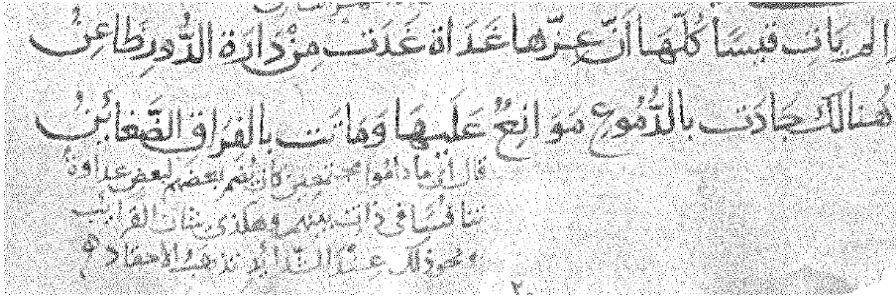 الم يات قيسا كلها ان عزها غداة غدت من دارة الدور ظاعن
هنالك جادت بالدموع موانع عليها وماتت بالفراق الضغائن
قال اي ما داموا مجتمعين كان يضمر بعضهم لبعض عداوة
تنافسا في ذات بينهم وهكذى بنات القرائب
ونحو ذلك عند الشدائد تذهب الاحقاد